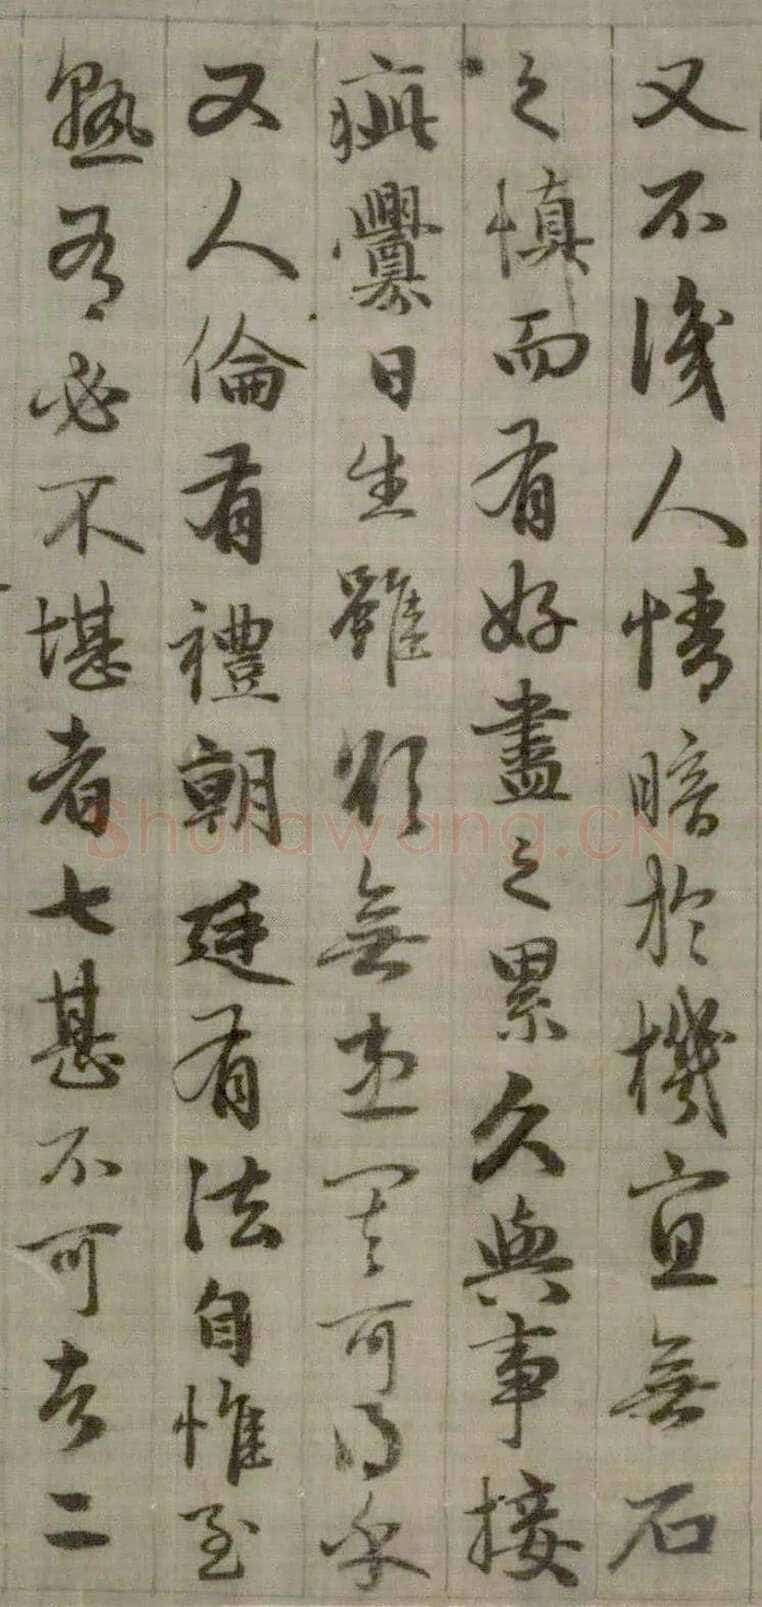 又不識人情暗於機宜無石
之慎而有好盡之累久與事接
疵釁日生雖欲無患其可得乎
又人倫有禮朝廷有法自惟至
熟有必不堪者七甚不可者二
Shufawang.CN